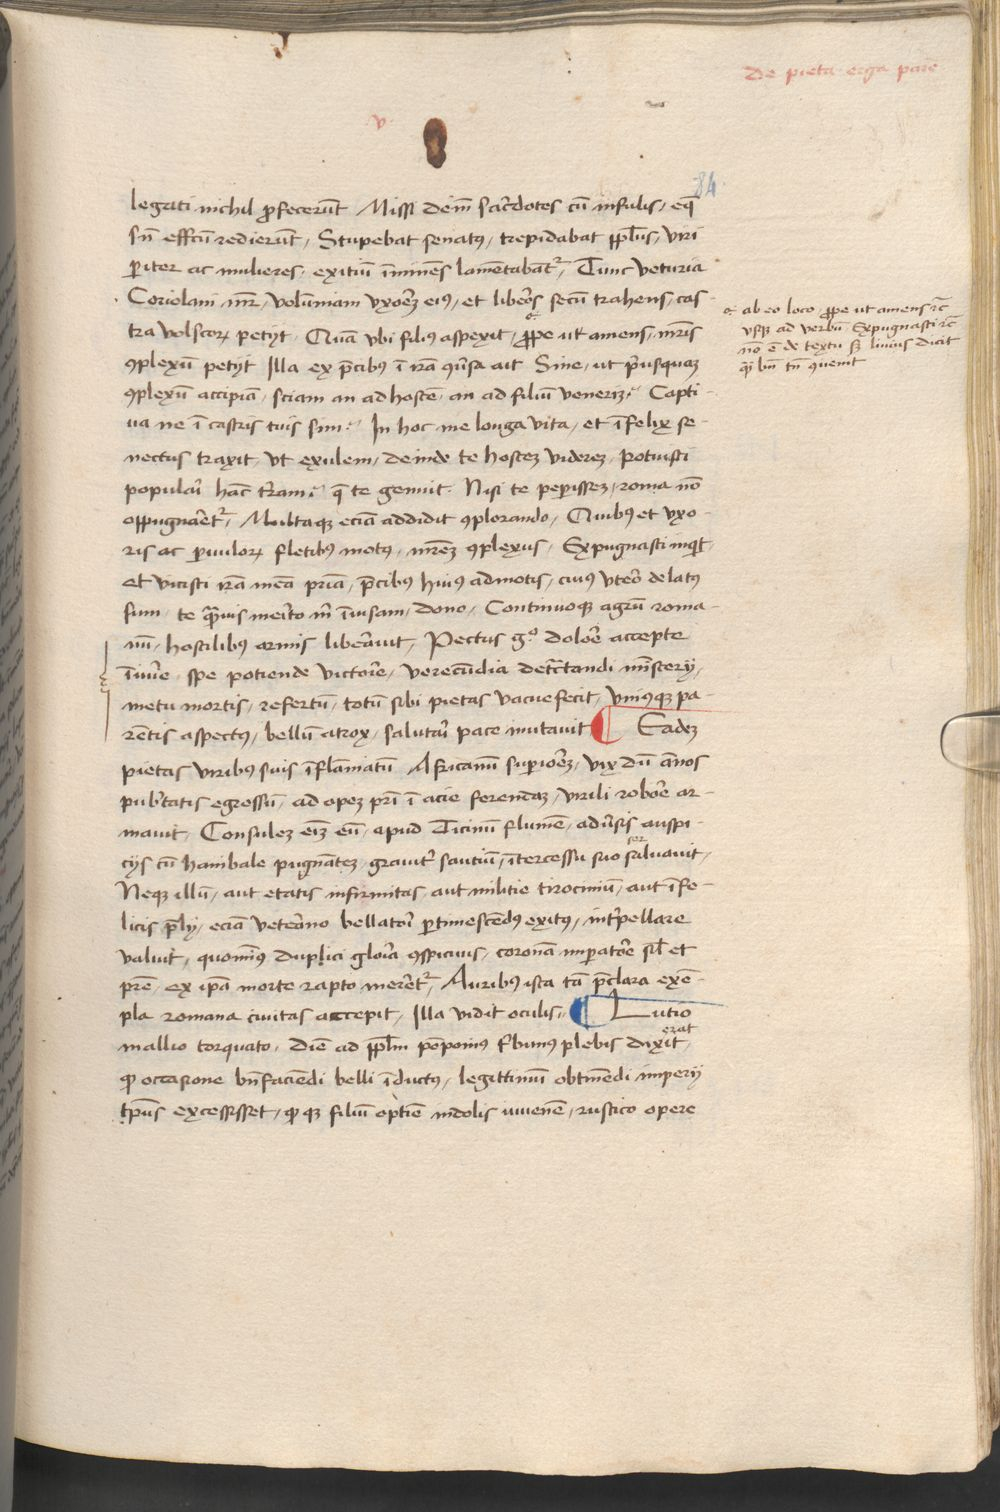 De pieta erga pare
v
84
legati nichil ꝓfecerūt Missi deīn sac̄dotes cū infulis, eqꝫ
sn̄ effcū redierūt, Stupebat senatꝰ, trepidabat ppl̄us, viri
ꝑiter ac mulieres, exitiū īmīnēs lamētabāt᷑, Tunc veturia
Coriolani mr̄, volūniam vxoēꝫ eiꝰ, et libeōs secū trahens, cas-
tra volscoꝝ petijt, Quā vbi filiꝰ aspexit, ꝓpe ut amens, mr̄is
ꝯplexū petijt Illa ex p̄cibꝰ ī irā ꝯūsa ait Sine, ut p̄usquaꝫ
ꝯplexū accipiā, sciam an ad hostē, an ad filiū veneriꝫ, Capti-
ua ne ī castris tuis sim, In hoc me longa vita, et īfelix se-
nectus traxit, vt exulem, deinde te hosteꝫ videreꝫ, Potuisti
populaī hāc tr̄am, q̄ te genuit. Nisi te peperisseꝫ, roma nō
oppugnaēt᷑, Multaqꝫ eciā addidit ꝯplorando, Quibꝰ et vxo-
ris ac ꝑuuloꝝ fletibꝰ motꝰ, mr̄eꝫ ꝯplexus, Expugnasti inqͥt,
et vicisti irā meā p̄riā, p̄cibus huiꝰ admotis, cuiꝰ vteō de latꝰ
sum, te qͣuis meīto m̄ īuisam, dono, Continuoqꝫ agrū roma-
nū, hostilibus armis libeāuit, Pectus g° doloē accepte
īiuīe, spe potiende victoīe, verecūdia det̄ctandi mīstery,
metu mortis, refertū, totū sibi pietas vacue fecit, vniꝰqꝫ pa-
rētis aspectus, bellū atrox, salutaī pace mutauit ¶ Eadeꝫ
pietas viribus suis īflāmatū Africanū supioēꝫ, vix dū ānos
pub̄tatis egressū, ad opeꝫ pr̄i ī acie ferendaꝫ, virili roboē ar-
mauit, Consuleꝫ eīꝫ eū, apud Ticinū flumē, adūsis auspi-
cijs cū hanibale pugnāteꝫ, grauit᷑ sauciū, īt̄cessu suo seruauit,
Neqꝫ illū, aut etatis infirmitas, aut militie tirociniū, aut īfe-
licis p̄ly, eciā veteāno bellatoī ꝑtimescēdꝰ exitꝰ, int̄pellare
valuit, quomīꝰ duplici gloīa ꝯspicuus, coronā impatoē sil̄ et
p̄re, ex ip̄a morte rapto meēt᷑, Auribus ista tā p̄clara exē-
pla romana ciuitas accepit, Illa vidit oculis, ¶ Lutio
mallio torquato, diē ad ppl̄m pōponiꝰ t̄bunꝰ plebis dixit,
erat
ꝙ occasione bn̄ faciēdi belli īductꝰ, legittimū obtinēdi impeīj
tp̄us excessisset, ꝙ qꝫ filiū optīe indolis iuuenē, rustico opere
ab eo loco, ꝓpe ut amens ꝛc̄
vsqꝫ ad verbū Expugnasti ꝛc̄
nō ē de textu sꝫ liuius dicit
qͣi bn̄ tn̄ ꝯuenit